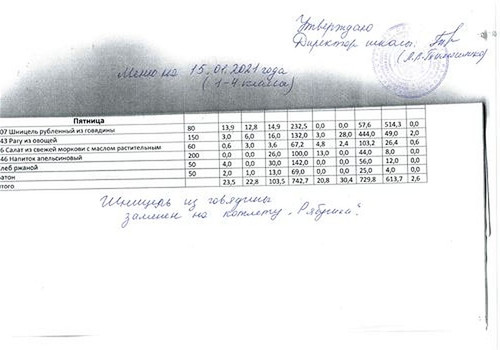 Утверждаю
Директор школы:
Меню на 15.01.2021 года
(1-4 класса)
Пятница
07 Шницель рубленный из говядины 80 13,9 12,8 14,9 232,5 0,0 0,0 57,6 514,3 0,0
43 Рагу из овощей 150 3,0 6,0 16,0 132,0 3,0 28,0 444,0 49,0 2,0
6 Салат из свежей моркови с маслом растительным 60 0,6 3,0 3,6 67,2 4,8 2,4 103,2 26,4 0,6
46 Напиток апельсиновый 200 0,0 0,0 26,0 100,0 13,0 0,0 44,0 8,0 0,0
леб ржаной 50 4,0 0,0 30,0 142,0 0,0 0,0 56,0 12,0 0,0
атон 50 2,0 1,0 13,0 69,0 0,0 0,0 25,0 4,0 0,0
того 23,5 22,8 103,5 742,7 20,8 30,4 729,8 613,7 2,6
Шницель из говядины
заменен на котлету „Рябушка".